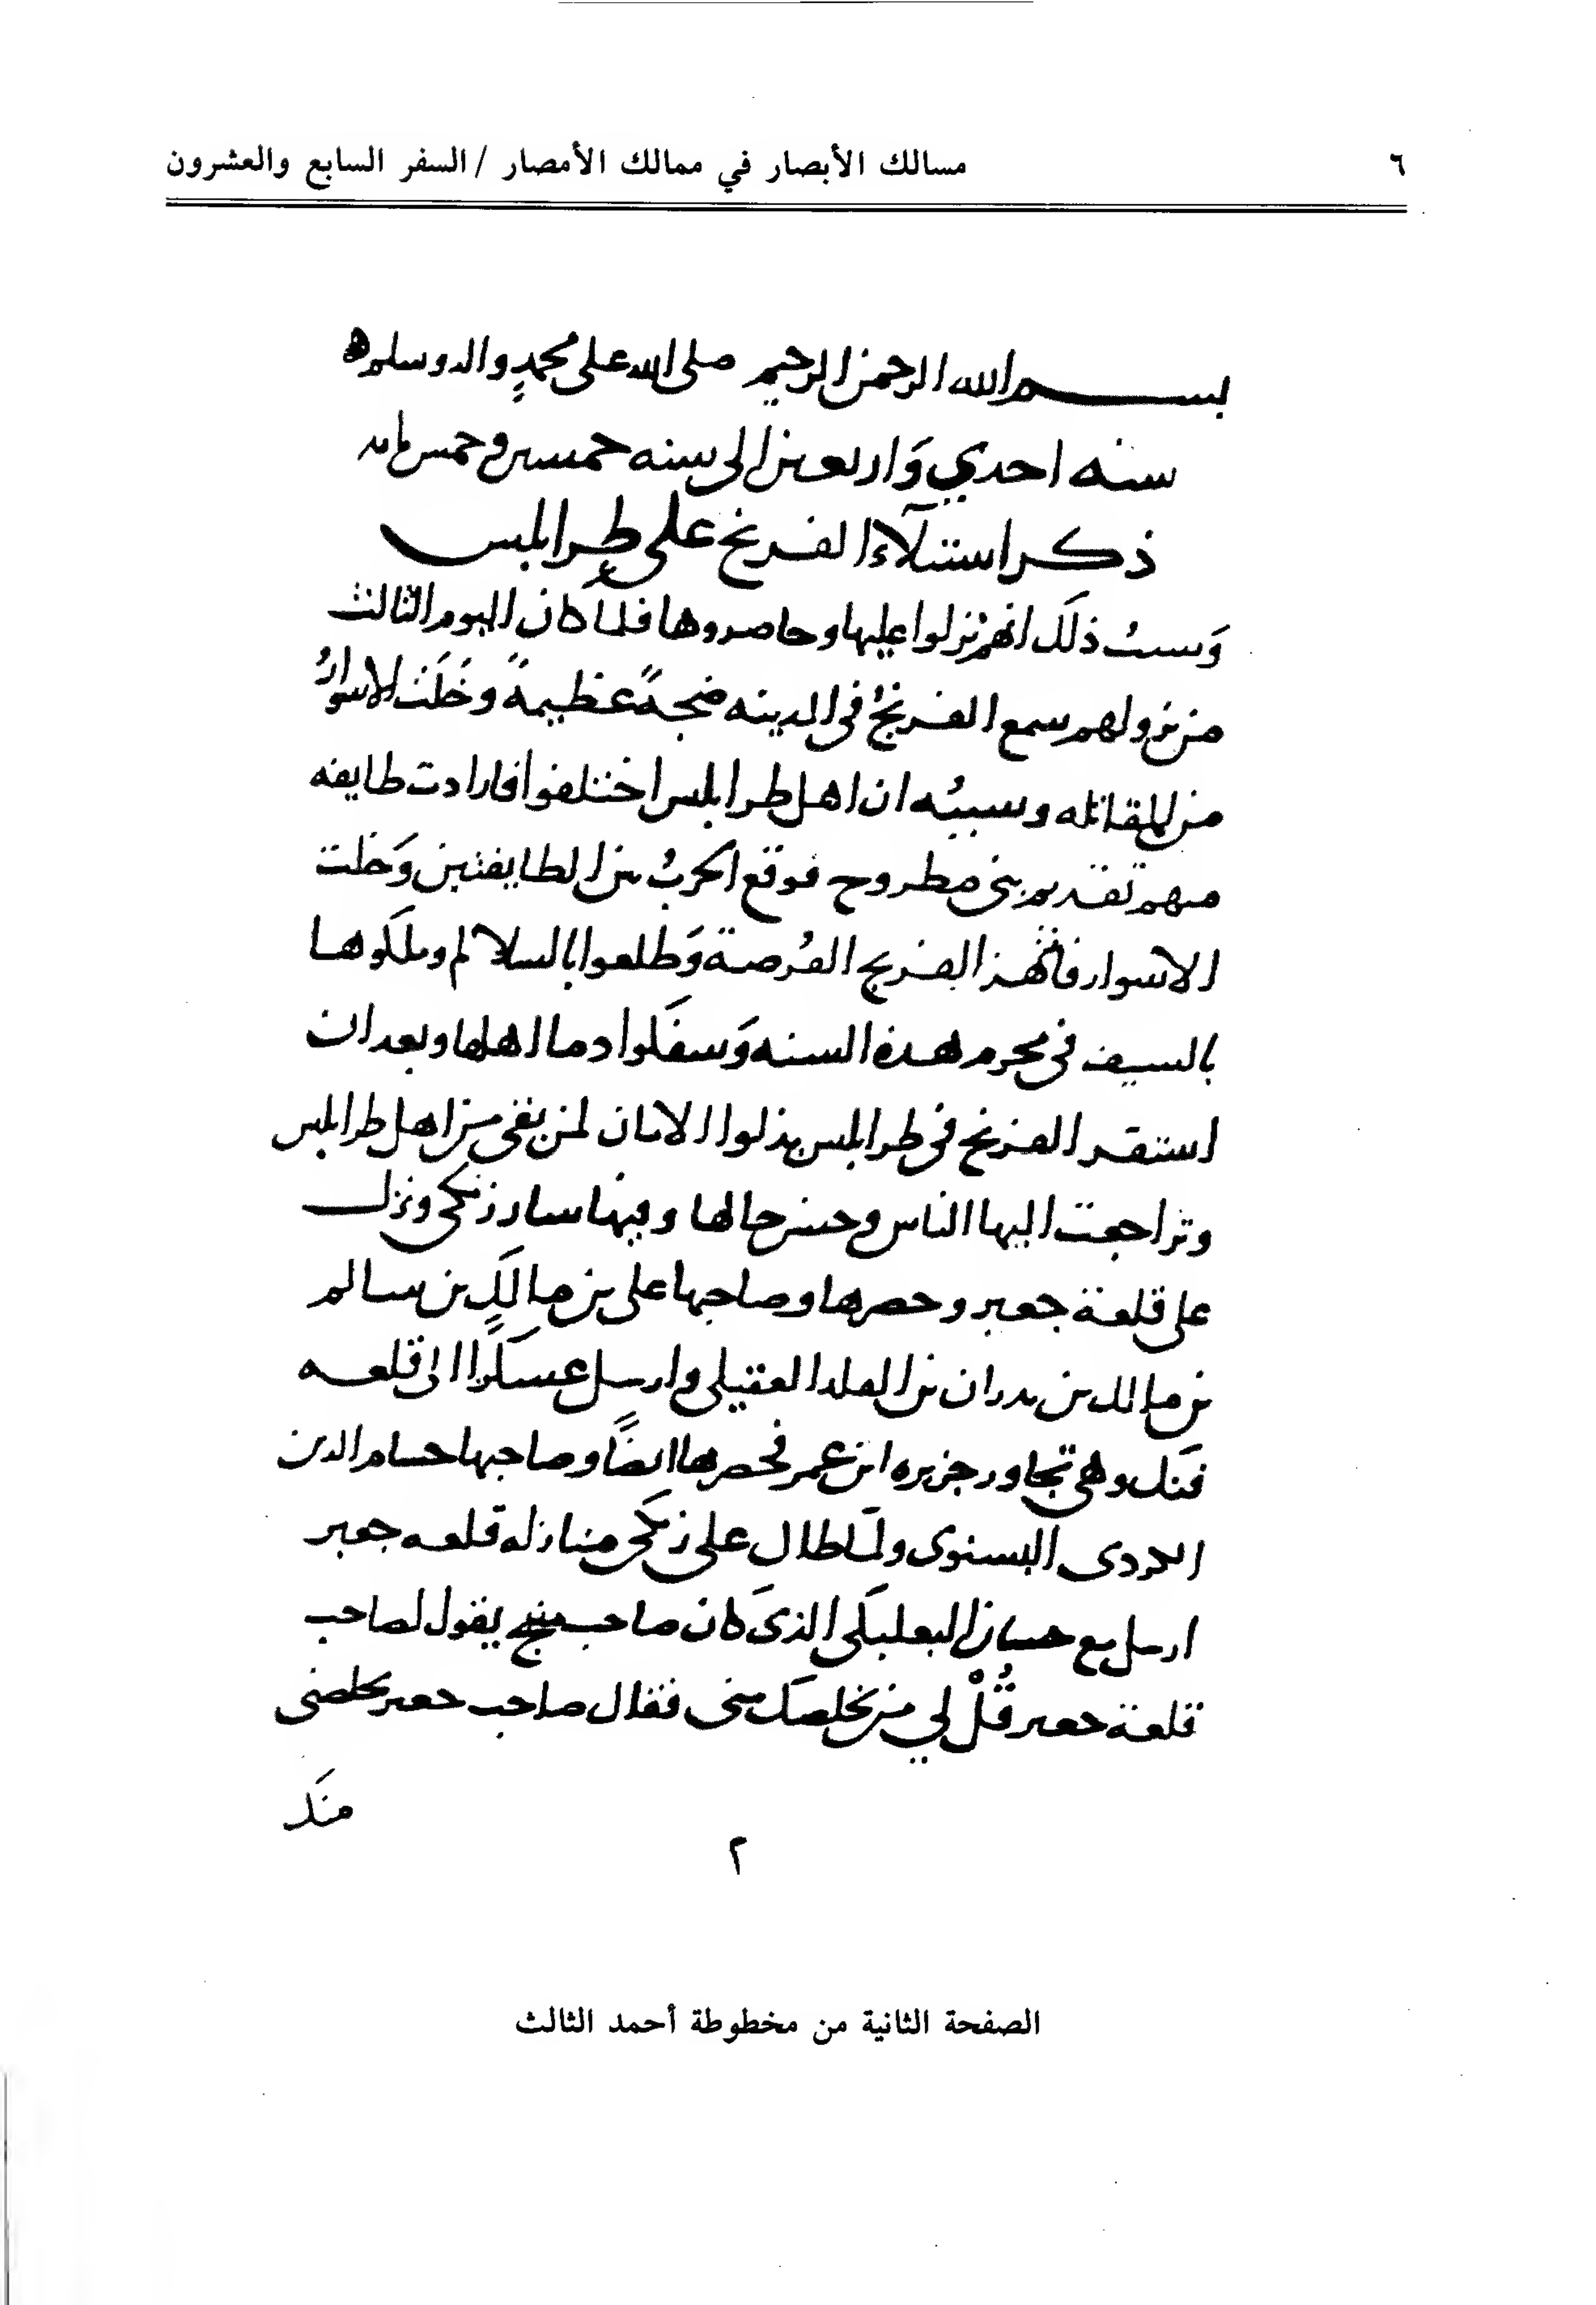 ٦ مسالك الأبصار في ممالك الأمصار / السفر السابع والعشرون
بسم الله الرحمن الرحيم صلى الله على محمدٍ واله وسلم
سنه احدي وَاربعين الى سنه خمسين وخمس مايه
ذكر استيلآء الفرنج على طرابلس
وَسببُ ذلكَ انهم نزلوا عليها وحاصروها فلما كان اليوم الثالث
من نزولهم سمع الفرنجُ في المدينه ضجةً عظيمةً وخَلَت الاسوارُ
من المقاتله وسببُه ان اهل طرابلس اختلفوا فارادت طايفه
منهم تقديم بني مطروح فوقع الحربُ بين الطايفتين وَخلت
الاسوار فانتهز الفرنج الفُرصة وَطلعوا بالسلالم وملكوها
بالسيف في محرم هذه السنه وَسفَكوا دما اهلها وبعد ان
استقر الفرنج في طرابلس بذلوا الامان لمن بقي من اهل طرابلس
وتراجعت اليها الناس وحسن حالها وفيها سار زنكي ونزل
على قلعة جعبر وحصرها وصاحبها على بن مالكِ بن سالم
بن مالك بن بدران بن المقلد العقيلي وارسل عسكرًا الى قلعه
فنك وهى تجاور جزيره ابن عمر فحصرها ايضًا وصاحبها حسام الدين
الكردى البشنوى ولمّا طال على زنكى منازله قلعه جعبر
ارسل مع حسان البعلبكى الذى كان صاحب منبج يقول لصاحب
قلعة جعبر قُلْ لي من يخلصك منى فقال صاحب جعبر يخلصنى
منكَ
٢
الصفحة الثانية من مخطوطة أحمد الثالث